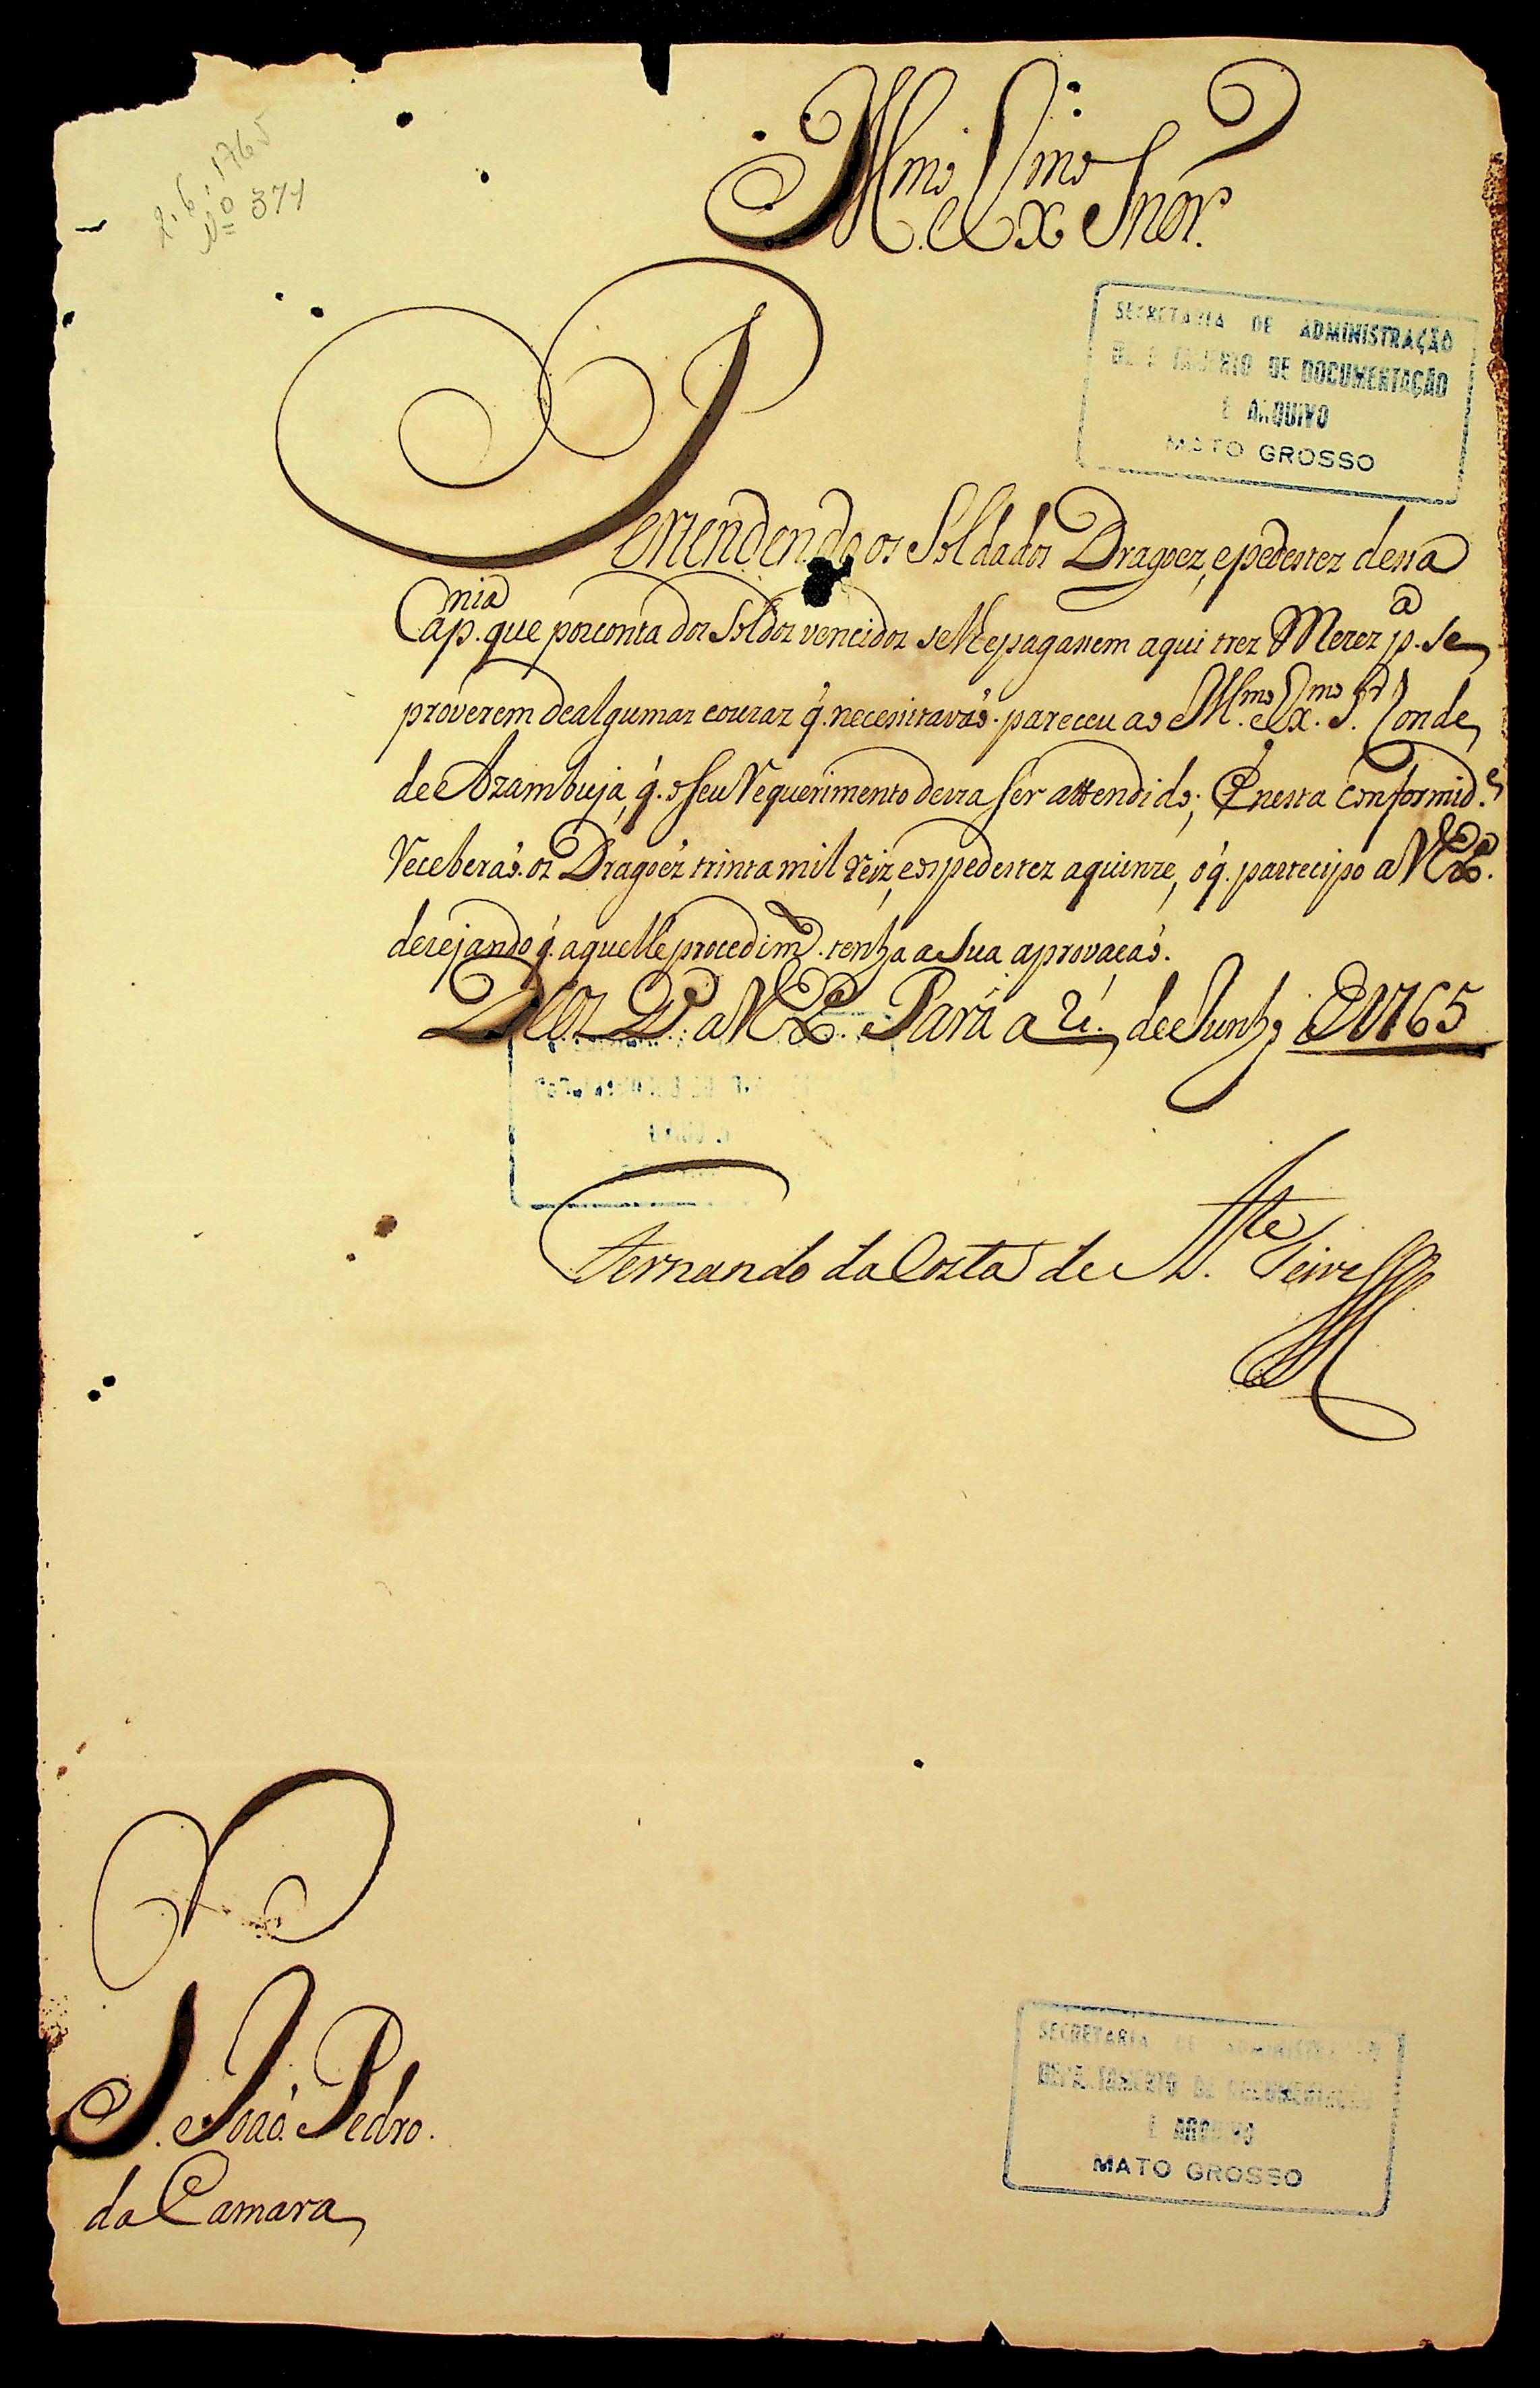 2.6.1765
Nº 371
Illmo. e Exmo Snor.
SECRETARIA DE ADMINISTRAÇÃO
DEPARTAMENTO DE DOCUMENTAÇÃO
E ARQUIVO
MATO GROSSO
Pertendendo os Soldados Dragoez, epedestez dessa
Cap.nia que porconta dos Soldos vencidos selhepagassem aqui trez Mezez p.a se
proverem dealgumas couzas q̃. necessitavaõ. pareceu ao Illmo. e Exmo. Sr. Conde
de Azambuja, q̃. o seu Requerimento devia ser attendido; E nesta conformid.e
Receberaõ. os Dragoẽz trinta mil reiz, eospedestez aquinze, oq̃. partecipo a V.Ex.
dezejando q̃. aquelle procedim.to tenha a Sua aprovacaõ.
Deos G.de a V.Ex. Pará a 2. de Junho de 1765
Fernando da Costa de Atte. Teive
S. Joaõ Pedro.
da Camara
SECRETARIA DE ADMINISTRAÇÃO
DEPARTAMENTO DE DOCUMENTAÇÃO
E ARQUIVO
MATO GROSSO